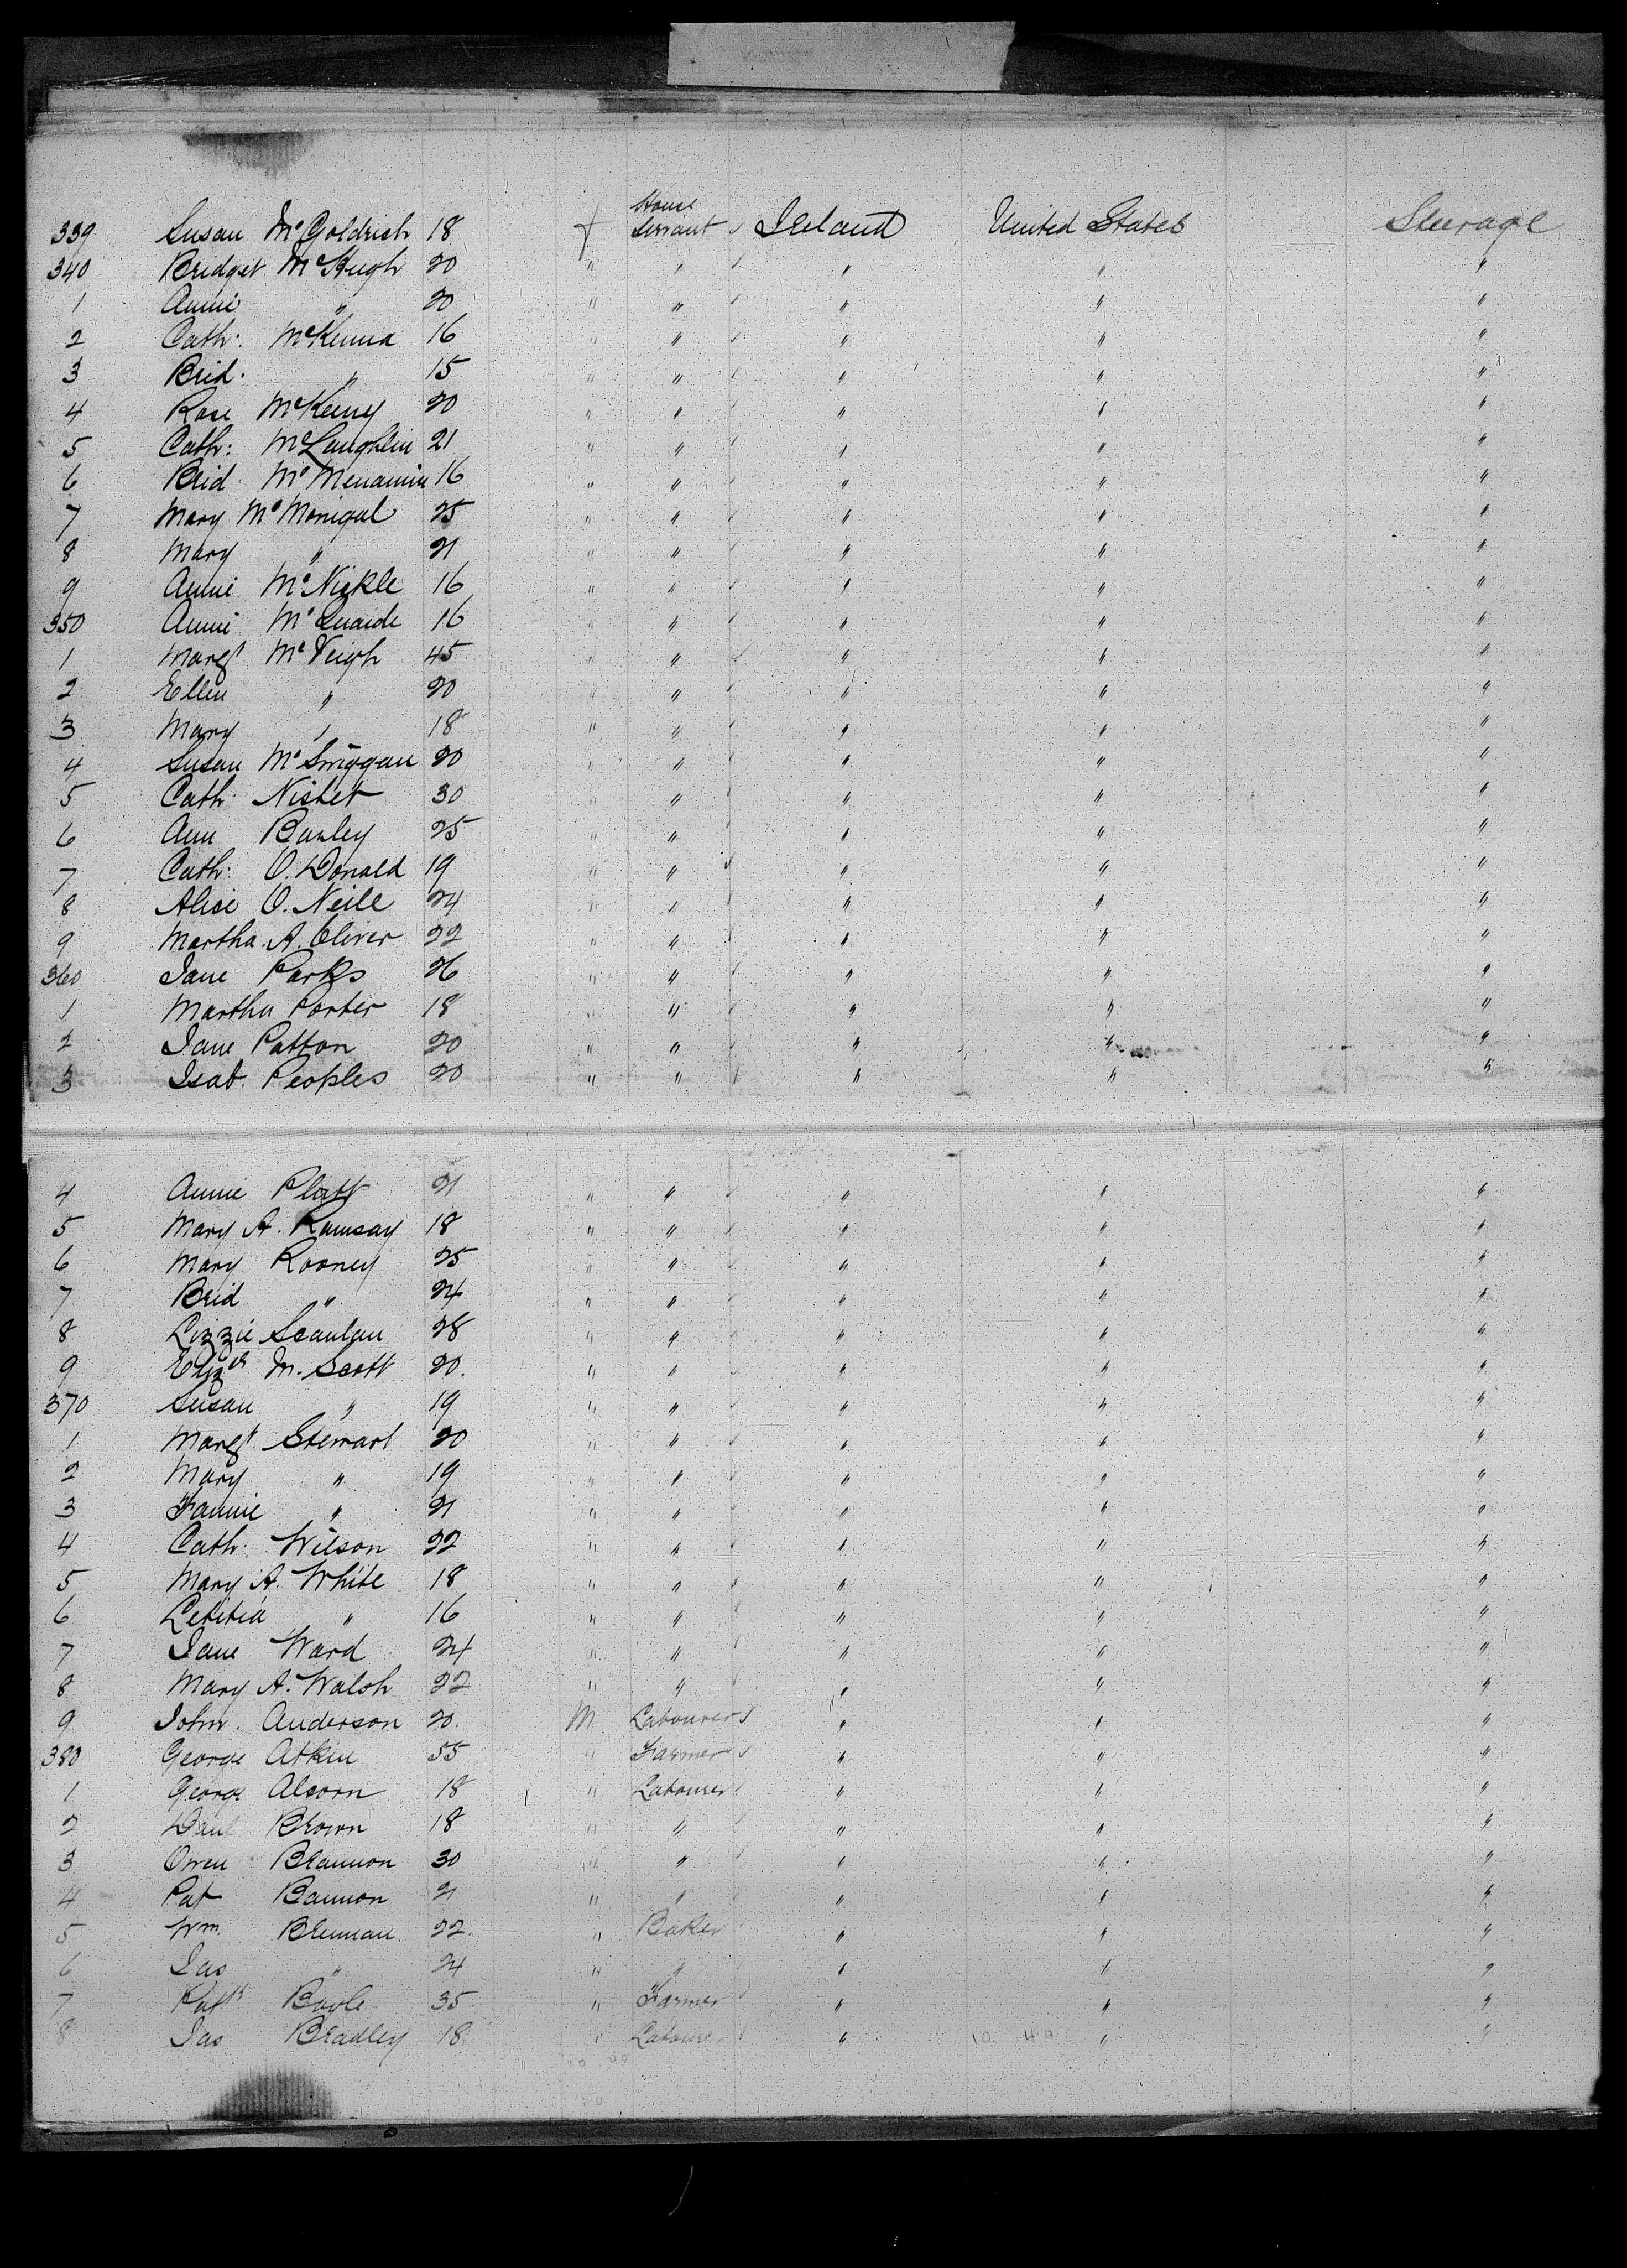 339 Susan McGoldrich 18 f House Servant Ireland United States Steerage
340 Bridget McHugh 20 " " " " "
1 Annie " 20 " " " " "
2 Cath: McKenna 16 " " " " "
3 Brid. " 15 " " " " "
4 Rose McKeeny 20 " " " " "
5 Cath: McLaughlin 21 " " " " "
6 Brid. McMenamin 16 " " " " "
7 Mary McMonigal 25 " " " " "
8 Mary " 21 " " " " "
9 Annie McNickle 16 " " " " "
350 Annie McQuaide 16 " " " " "
1 Margt McVeigh 45 " " " " "
2 Ellen " 20 " " " " "
3 Mary " 18 " " " " "
4 Susan McSwiggan 20 " " " " "
5 Cath. Nisbet 30 " " " " "
6 Ann 25 " " " " "
7 Cath: O.Donald 19 " " " " "
8 Alice O.Neile 24 " " " " "
9 Martha.A.Oliver 22 " " " " "
360 Jane Parks 26 " " " " "
1 Martha Porter 18 " " " " "
2 Jane Patton 20 " " " " "
3 Isab. Peoples 20 " " " " "
4 Annie Platt 21 " " " " "
5 Mary A. Ramsay 18 " " " " "
6 Mary Rooney 25 " " " " "
7 Brid " 24 " " " " "
8 Lizzie Scanlan 28 " " " " "
9 Elizth M. Scott 20. " " " " "
370 Susan " 19 " " " " "
1 Margt Stewart 20 " " " " "
2 Mary " 19 " " " " "
3 Fannie " 21 " " " " "
4 Cath. Wilson 22 " " " " "
5 Mary A. White 18 " " " " "
6 Letitia " 16 " " " " "
7 Jane Ward 24 " " " " "
8 Mary A. Walsh 22 " " " " "
9 John. Anderson 20. M Labourer " " "
380 George Atkin 55 " Farmer " " "
1 George Alcorn 18 " Labourer " " "
2 Danl Brown 18 " " " " "
3 Owen Brannon 30 " " " " "
4 Pat Bannon 21 " " " " "
5 Wm. Brennan 22. " Baker " " "
6 Jas " 24 " " " " "
7 Patk Boyle 35 " Farmer " " "
8 Jas Bradley 18 " Labourer " " "